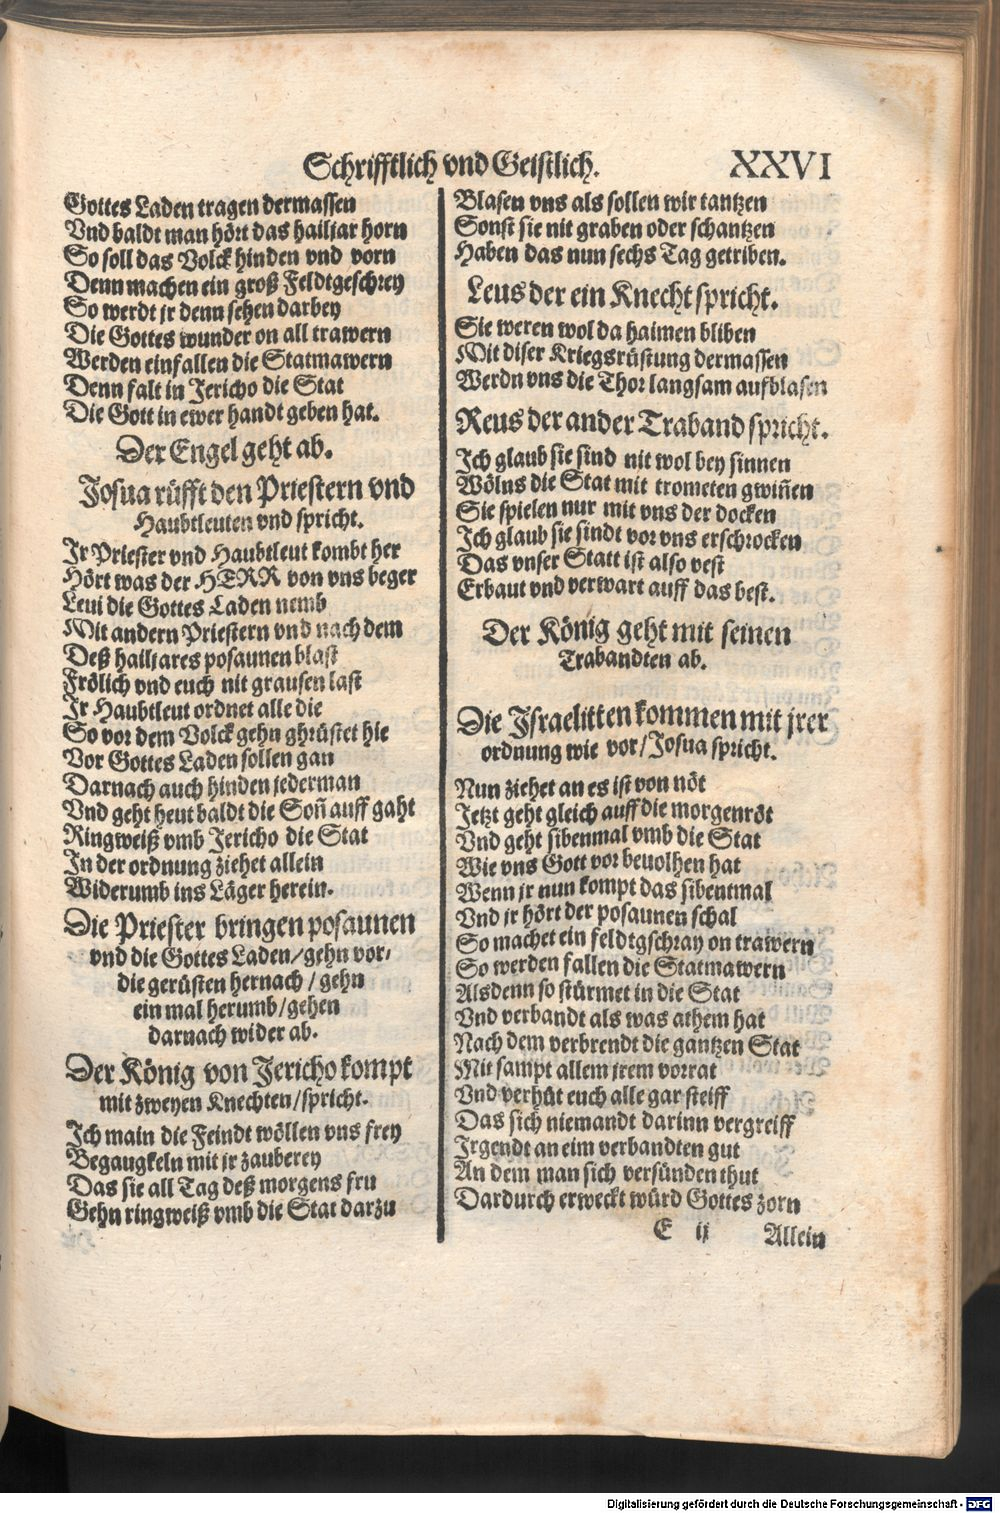 Schrifftlich vnd Geistlich. XXVI
Gottes Laden tragen dermassen
Vnd baldt man hört das hailiar horn
So soll das Volck hinden vnd vorn
Denn machen ein groß Feldtgeschrey
So werdt jr denn sehen darbey
Die Gottes wunder on all trawern
Werden einfallen die Statmawern
Denn falt in Jericho die Stat
Die Gott in ewer handt geben hat.
Der Engel geht ab.
Josua rüfft den Priestern vnd
Haubtleuten vnd spricht.
Jr Priester vnd Haubtleut kombt her
Hört was der HERR von vns beger
Leui die Gottes Laden nemb
Mit andern Priestern vnd nach dem
Deß hailjares posaunen blast
Frölich vnd euch nit grausen last
Jr Haubtleut ordnet alle die
So vor dem Volck gehn ghrüstet hie
Vor Gottes Laden sollen gan
Darnach auch hinden jederman
Vnd geht heut baldt die Soñ auff gaht
Ringweiß vmb Jericho die Stat
In der ordnung ziehet allein
Widerumb ins Läger herein.
Die Priester bringen posaunen
vnd die Gottes Laden/gehn vor/
die gerüsten hernach / gehn
ein mal herumb/gehen
darnach wider ab.
Der König von Jericho kompt
mit zweyen Knechten/spricht.
Ich main die Feindt wöllen vns frey
Begaugkeln mit jr zauberey
Das sie all Tag deß morgens fru
Gehn ringweiß vmb die Stat darzu
Blasen vns als sollen wir tantzen
Sonst sie nit graben oder schantzen
Haben das nun sechs Tag getriben.
Leus der ein Knecht spricht.
Sie weren wol da haimen bliben
Mit diser Kriegsrüstung dermassen
Werdn vns die Thor langsam aufblasen
Reus der ander Traband spricht.
Ich glaub sie sind nit wol bey sinnen
Wölns die Stat mit trometen gwiñen
Sie spielen nur mit vns der docken
Ich glaub sie sindt vor vns erschrocken
Das vnser Statt ist also vest
Erbaut vnd verwart auff das best.
Der König geht mit seinen
Trabandten ab.
Die Israelitten kommen mit jrer
ordnung wie vor/Josua spricht.
Nun ziehet an es ist von nöt
Jetzt geht gleich auff die morgenröt
Vnd geht sibenmal vmb die Stat
Wie vns Gott vor beuolhen hat
Wenn jr nun kompt das sibentmal
Vnd jr hört der posaunen schal
So machet ein feldtgschray on trawern
So werden fallen die Statmawern
Alsdenn so stürmet in die Stat
Vnd verbandt als was athem hat
Nach dem verbrendt die gantzen Stat
Mit sampt allem jrem vorrat
Vnd verhüt euch alle gar steiff
Das sich niemandt darinn vergreiff
Irgendt an eim verbandten gut
An dem man sich versünden thut
Dardurch erweckt würd Gottes zorn
E ij Allein
Digitalisierung gefördert durch die Deutsche Forschungsgemeinschaft - DFG